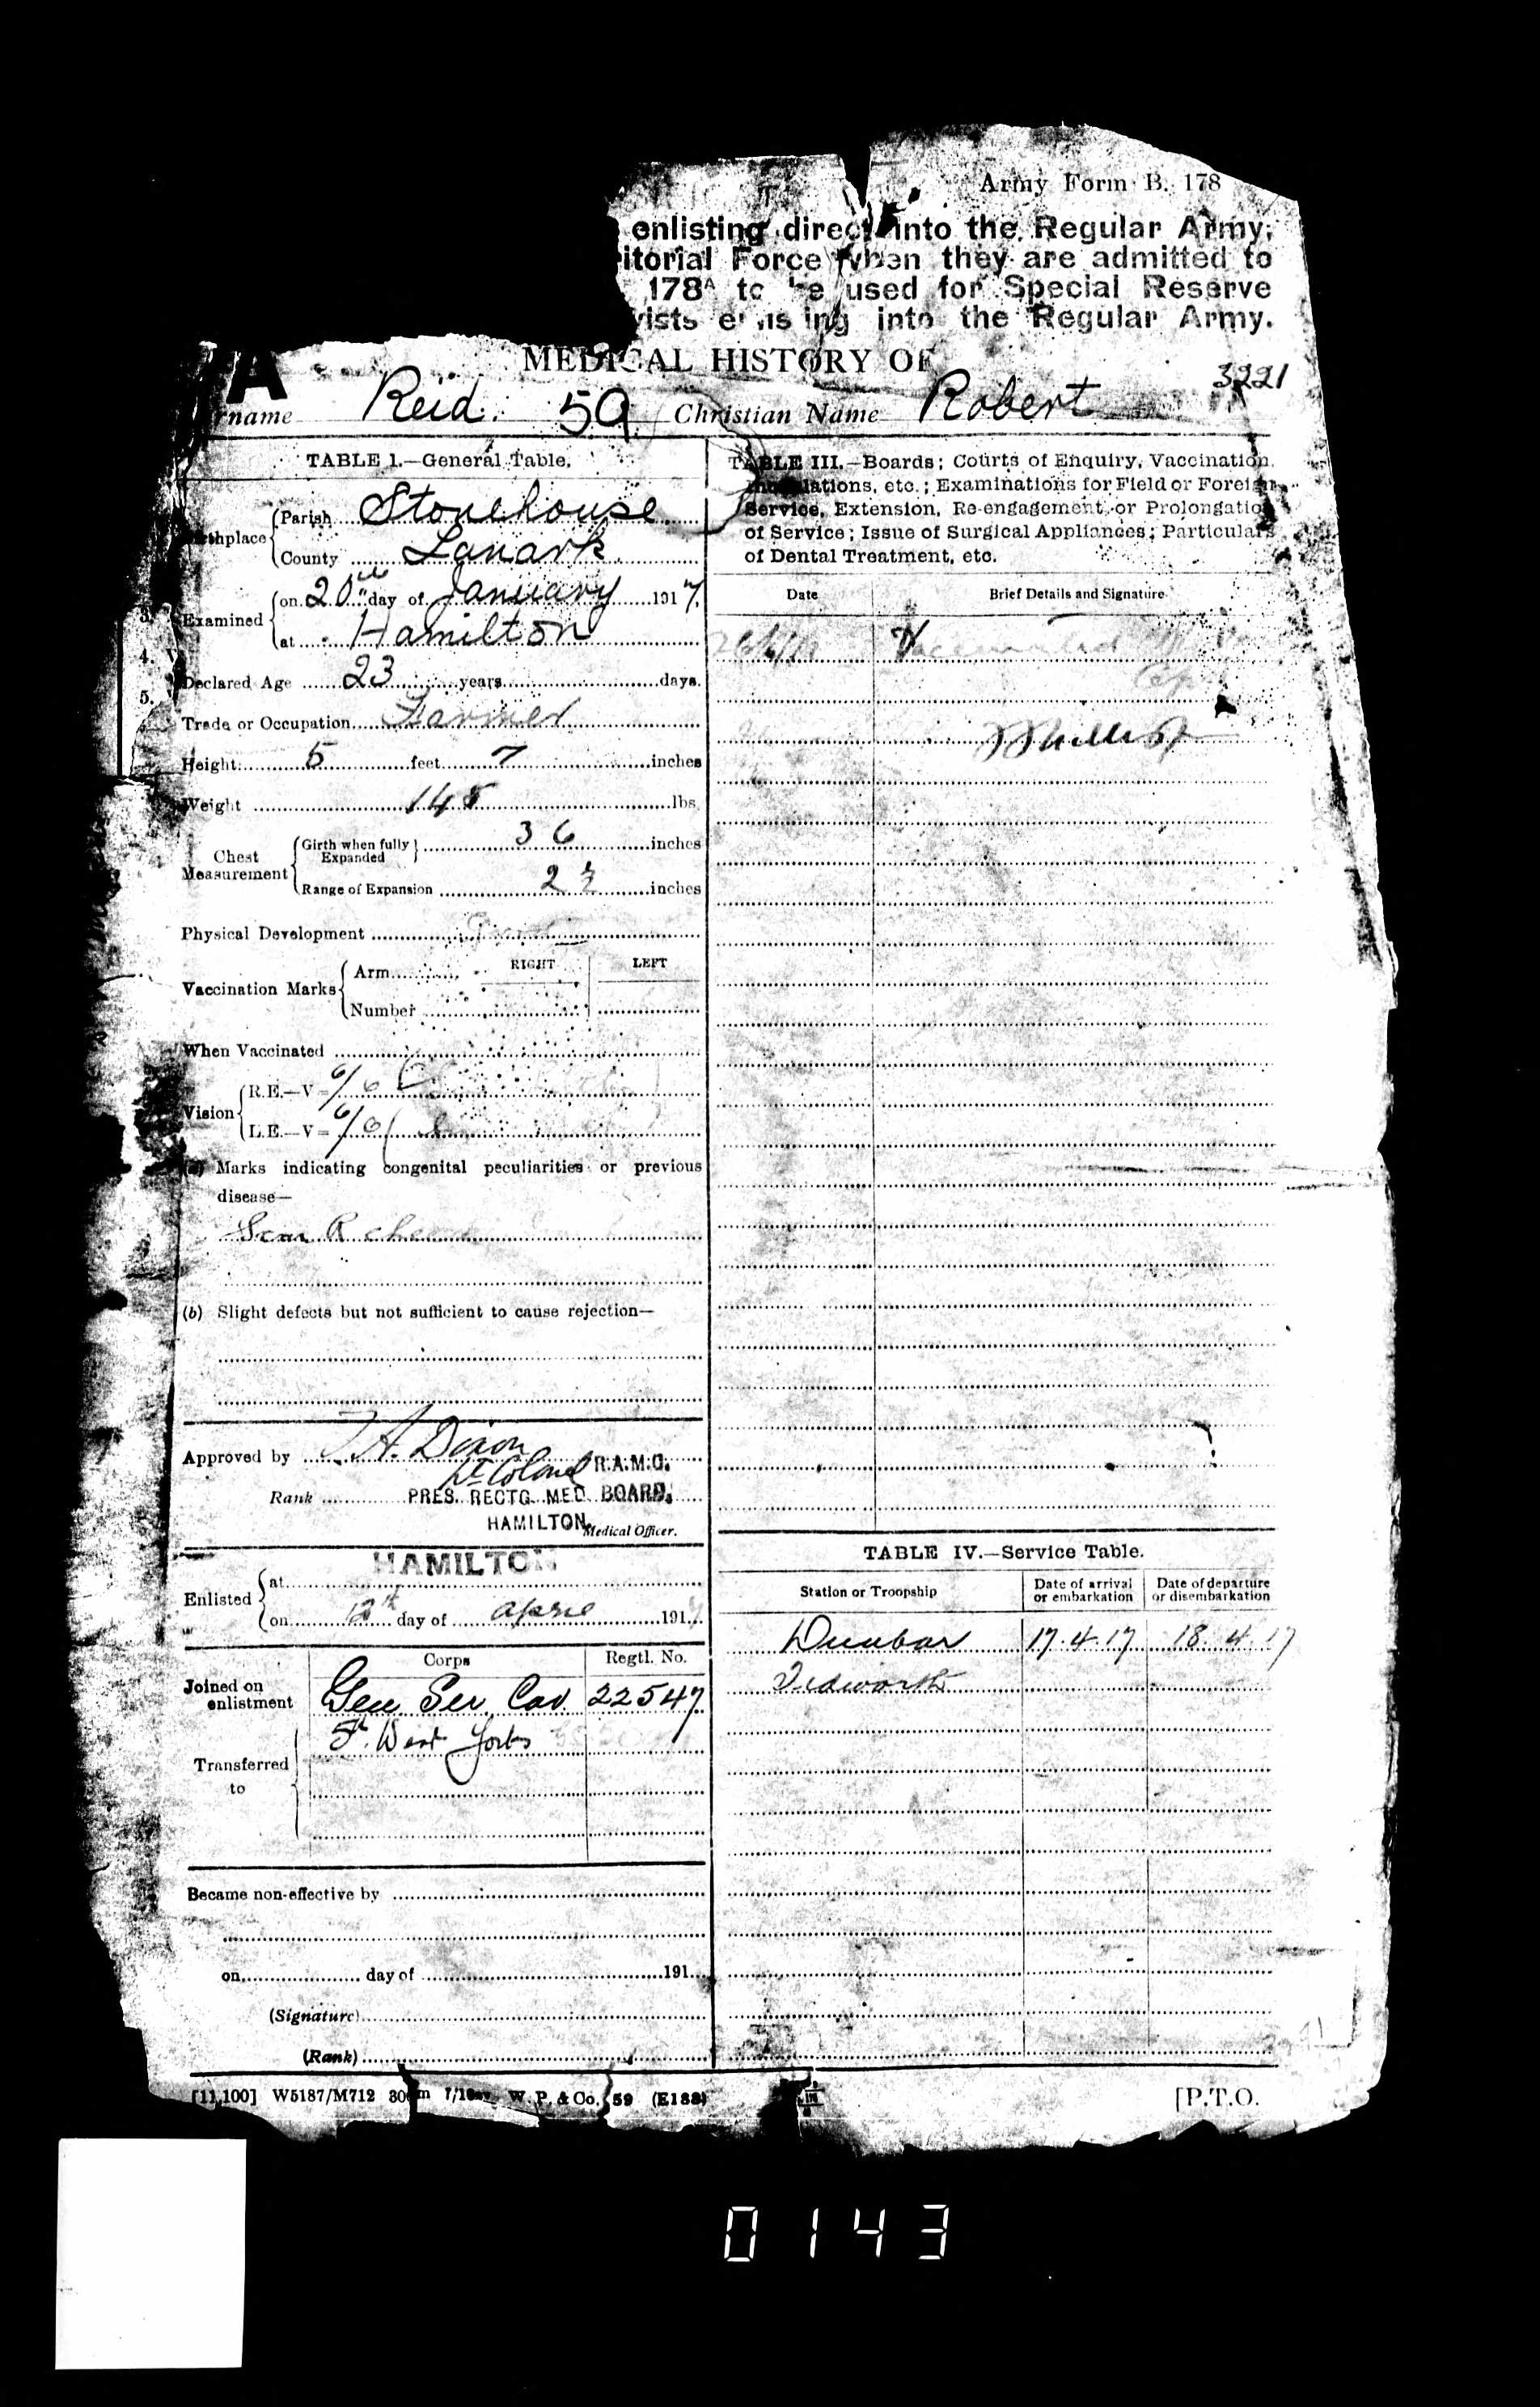 Army Form B. 178
enlisting direct into the Regular Army,
itorial Force when they are admitted to
178A to be used for Special Reserve
ists enlisting into the Regular Army.
A
MEDICAL HISTORY OF
3221
rname Reid. 59 Christian Name Robert
TABLE I.—General Table.
Birthplace { Parish Stonehouse
County Lanark
Examined { on 20th day of January 1917.
at Hamilton
3.
4.
5.
Declared Age 23 years days.
Trade or Occupation Farmer
Height 5 feet 7 inches
Weight 148 lbs.
Chest Measurement { Girth when fully Expanded } 36 inches
Range of Expansion 2 inches
Physical Development
Vaccination Marks { Arm RIGHT LEFT
Number
When Vaccinated
Vision { R.E.—V = 6/6
L.E.—V = 6/6
(a) Marks indicating congenital peculiarities or previous
disease—
Scar R
(b) Slight defects but not sufficient to cause rejection—
Approved by Dixon
Lt Colonel R.A.M.C.
Rank PRES. RECTG. MED. BOARD,
HAMILTON. Medical Officer.
Enlisted { at HAMILTON
on 12th day of April 191
Corps Regtl. No.
Joined on enlistment Gen Ser Cav. 22547
Transferred to 5th West Yorks
Became non-effective by
on day of 191
(Signature)
(Rank)
TABLE III.—Boards; Courts of Enquiry, Vaccination,
Inoculations, etc.; Examinations for Field or Foreign
Service, Extension, Re-engagement, or Prolongation
of Service; Issue of Surgical Appliances; Particulars
of Dental Treatment, etc.
Date Brief Details and Signature
Vaccinated
TABLE IV.—Service Table.
Station or Troopship Date of arrival or embarkation Date of departure or disembarkation
Dunbar 17.4.17 18.4.17
Tidworth
[11,100] W5187/M712 W. P. & Co. 59 (E188)
[P.T.O.
0143